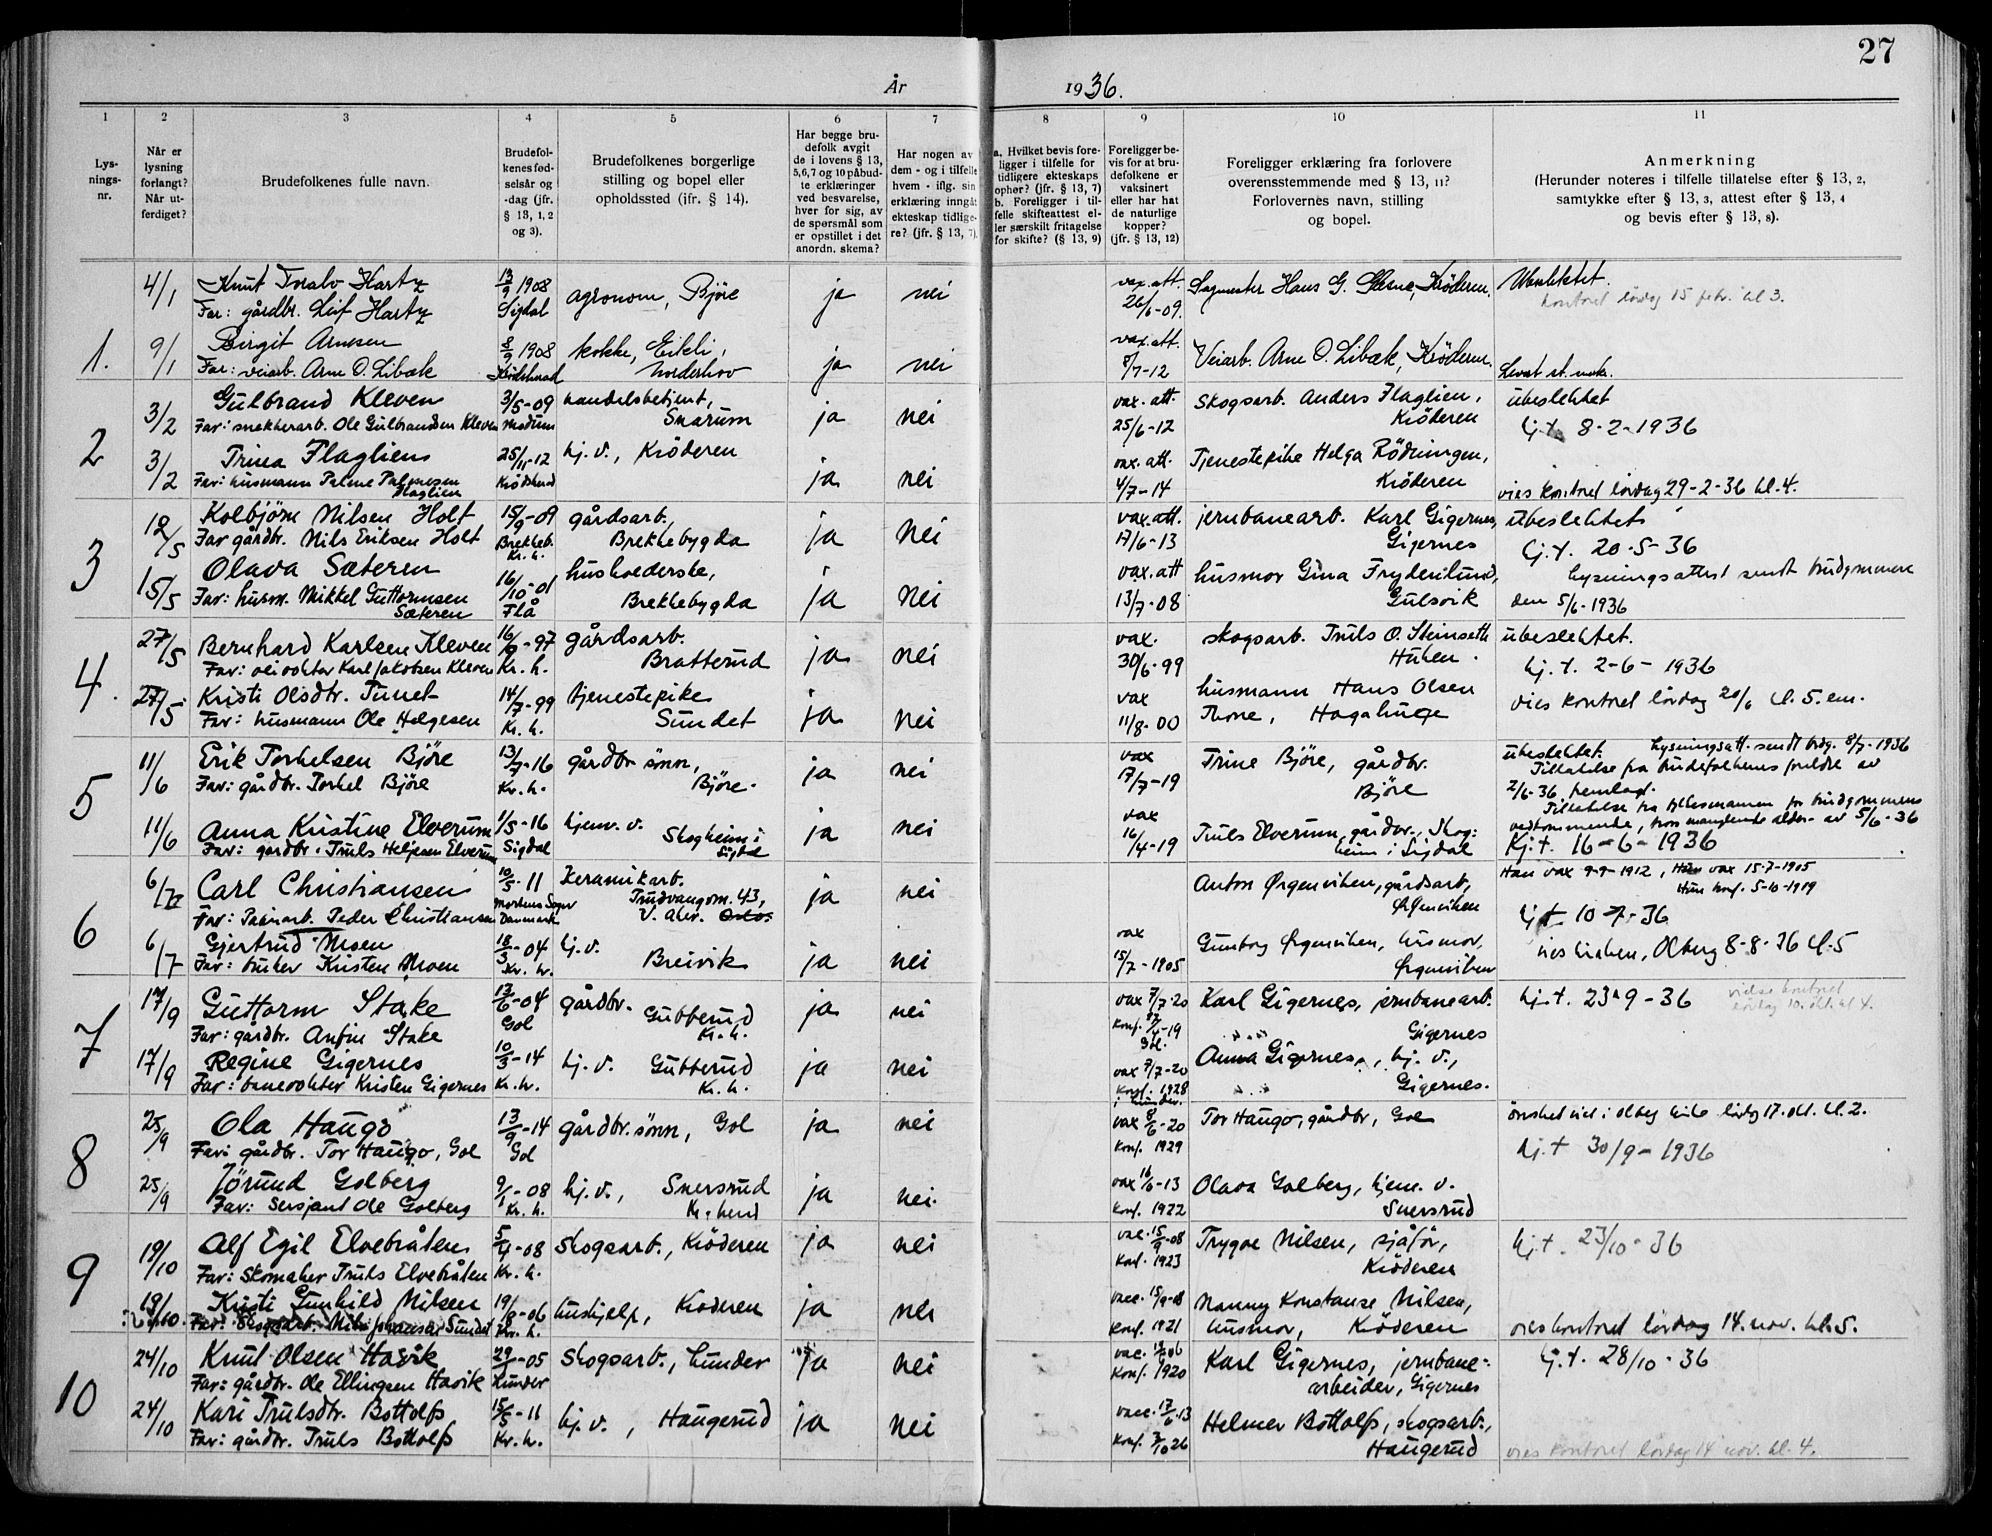 27
År 1936.
1
2
3
4
5
6
7
8
9
10
11
Lys-
nings-
nr.
Når er
lysning
forlangt?
Når ut-
ferdiget?
Brudefolkenes fulle navn.
Brudefol-
kenes fød-
selsår og
-dag (jfr.
§ 13, 1, 2
og 3).
Brudefolkenes borgerlige
stilling og bopel eller
opholdssted (ifr. § 14).
Har begge bru-
defolk avgit
de i lovens § 13,
5,6,7 og 10 påbud-
te erklæringer
ved besvarelse,
hver for sig, av
de spørsmål som
er opstillet i det
anordn. skema?
Har nogen av
dem - og i tilfelle
hvem - iflg. sin
erklæring inngåt
ekteskap tidlige-
re? (jfr. § 13, 7).
a. Hvilket bevis fore-
ligger i tilfelle for
tidligere ekteskaps
ophør? (jfr. § 13, 7)
b. Foreligger i til-
felle skifteattest el-
ler særskilt fritagelse
for skifte? (§ 13, 9)
Foreligger be-
vis for at bru-
defolkene er
vaksinert
eller har hat
de naturlige
kopper?
(jfr. § 13, 12)
Foreligger erklæring fra forlovere
overensstemmende med § 13, 11?
Forlovernes navn, stilling
og bopel.
Anmerkning
(Herunder noteres i tilfelle tillatelse efter § 13, 2,
samtykke efter § 13, 3, attest efter § 13, 4
og bevis efter § 13, 8).
1.
4/1 Knut Toralv Hartz 13/9 1908 agronom, Björe ja nei vax. att. Hans G. Kröderen. Ubeslektet.
Far: gårdbr. Leif Hartz Sigdal 26/6-09. kontoret lördag 15 febr. kl 3.
9/1 Birgit Arnesen 8/9 1908 kokke, Eikli, ja nei vax. att. Veiarb. Arne O. Libæk, Kröderen.
Far: veiarb. Arne O. Libæk Krödsherad Norderhov 8/7-12
2
3/2 Gulbrand Kleven 3/5-09 handelsbetjent, ja nei vax. att. Skogsarb. Anders Flaglien, ubeslektet
Far: snekkerarb. Ole Gulbrandsen Kleven Modum Snarum 25/6-12 Kröderen kj.t. 8-2-1936
3/2 Trina Flaglien 25/11-12 hj. v., Kröderen ja nei vax. att. Tjenestepike Helga Rödningen,
Far: husmann Palme Palmesen Flaglien Krödsherad 4/7-14 Kröderen vies kontoret lördag 29-2-36 kl. 4.
3
12/5 Kolbjörn Nilsen Holt 15/9-09 gårdsarb., ja nei vax. att. jernbanearb. Karl Gigernes, ubeslektet
Far gårdbr. Nils Eriksen Holt Brekkeb. Kr. h. Brekkebygda 17/6-13 Gigernes kj.t. 20-5-36
15/5 Olava Sæteren 16/10-01 husholderske, ja nei vax. att husmor Gina Fryderilund, lysningsattest sendt brudgommen
Far: husm. Mikkel Guttormsen Sæteren Flå Brekkebygda 13/7-08 Gulsvik den 5/6-1936
4.
27/5 Bernhard Karlsen Kleven 16/9-97 gårdsarb. ja nei vax. skogsarb. Truls O. Steinseth ubeslektet.
Far: veivokter Karl Jakobsen Kleven Kr. h. Bratterud 30/6-99 kj.t. 2-6-1936
27/5 Kristi Olsdtr. Tunet 14/7-99 tjenestepike ja nei vax husmann Hans Olsen vies kontoret lördag 20/6 kl. 5. em.
Far: husmann Ole Helgesen Kr. h. Sundet 11/8-00 Thone, Hagahuge
5
11/6 Erik Torkelsen Björe 13/7-16 gårdbr sönn, ja nei vax Trine Björe, gårdbr. ubeslektet. Lysningsatt. sendt brdg. 8/7-1936
Far: gårdbr. Torkel Björe Kr. h. Björe. 17/7-19 Björe Tillatelse fra brudefolkenes foreldre av
2/6-36 fremlagt.
Tillatelse fra fylkesmannen for brudgommens
11/6 Anna Kristine Elverum 1/5-16 hjem. v. ja nei vax Truls Elverum, gårdbr., Skog- vedkommende, tross manglende alder- av 5/6-36
Far: gårdbr. Truls Helgesen Elverum Sigdal Skogheim i Sigdal 16/4-19 heim i Sigdal Kj.t. 16-6-1936
6
6/7 Carl Christiansen 10/5-11 Keramikarb. ja nei Anton Ørgenviken, gårdsarb, Han vax 9-9-1912, Hun vax 15-7-1905
Hun konf. 5-10-1919
Far: Peder Christiansen Danmark Trudvangvn. 43, V. Aker. Oslo Ørgenviken kj.t 10-7-36
6/7 Gjertrud Moen 18/3-04 hj. v. ja nei vax Gunborg Ørgenviken, husmor, vies kirken, Olberg 8-8-36 kl. 5
Far: bruker Kristen Moen Kr. h. Breivik 15/7-1905 Ørgenviken
7
17/9 Guttorm Stake 13/6-04 gårdbr. ja nei vax 7/7-20 Karl Gigernes, jernbanearb. kj.t. 23-9-36 vielse kontoret
Far: gårdbr. Anfin Stake Gol Gubberud Kr. h. Konf. -19 Gol. Gigernes lördag 10. okt. kl 4.
17/9 Regine Gigernes 10/3-14 hj. v. Gubberud ja nei vax 7/7-20 Anna Gigernes, hj. v.,
Far: banevokter Kristen Gigernes Kr. h. Kr. h. Konf. 1928 Gigernes.
8
25/9 Ola Haugo 13/9-14 gårdbr. sönn, Gol ja nei vax 8/6-20 Tor Haugo, gårdbr, Gol önsket viet i Olberg kirke lördag 17. okt. kl. 2.
Far: gårdbr. Tor Haugo, Gol Gol Konf. 1929 kj.t 30/9-1936
25/9 Jörund Golberg 9/1-08 hj. v., Snersrud ja nei. vax 16/6-13 Olava Golberg, hjem. v.
Far: Sersjant Ole Golberg Kr. h. Kr. herd Konf. 1922 Snersrud
9
19/10 Alf Egil Elvebråten 5/4-08 skogsarb., Kröderen ja nei vac. 15/9-08 Trygve Nilsen, sjåför, kj.t. 23/10-36
Far: Skomaker Truls Elvebråten Kr. h. Konf. 1923 Kröderen
19/10 Kristi Gunhild Nilsen 19/8-06 hushjelp, Kröderen ja nei vacc. 15/9-08 Nanny Konstanse Nilsen,
Far: Skogsarb. Nils Johansen Sundet Kr. h. Konf. 1921 husmor, Kröderen vies kontoret lördag 14. nov. kl. 5.
10
24/10 Knut Olsen Havik 29/1-05 skogsarb., Lunder ja nei vac. -06 Karl Gigernes, jernbane- kj.t. 28/10-36
Far: gårdbr. Ole Ellingsen Havik Lunder Konf. 1920 arbeider, Gigernes
24/10 Kari Trulsdtr. Bottolfs 15/5-11 hj. v., Haugerud ja nei vacc. 17/6-13 Helmer Bottolfs, skogsarb.,
Far: gårdbr. Truls Bottolfs Kr. h. Konf. 3/10 26 Haugerud vies kontoret lördag 14 nov. kl. 4.